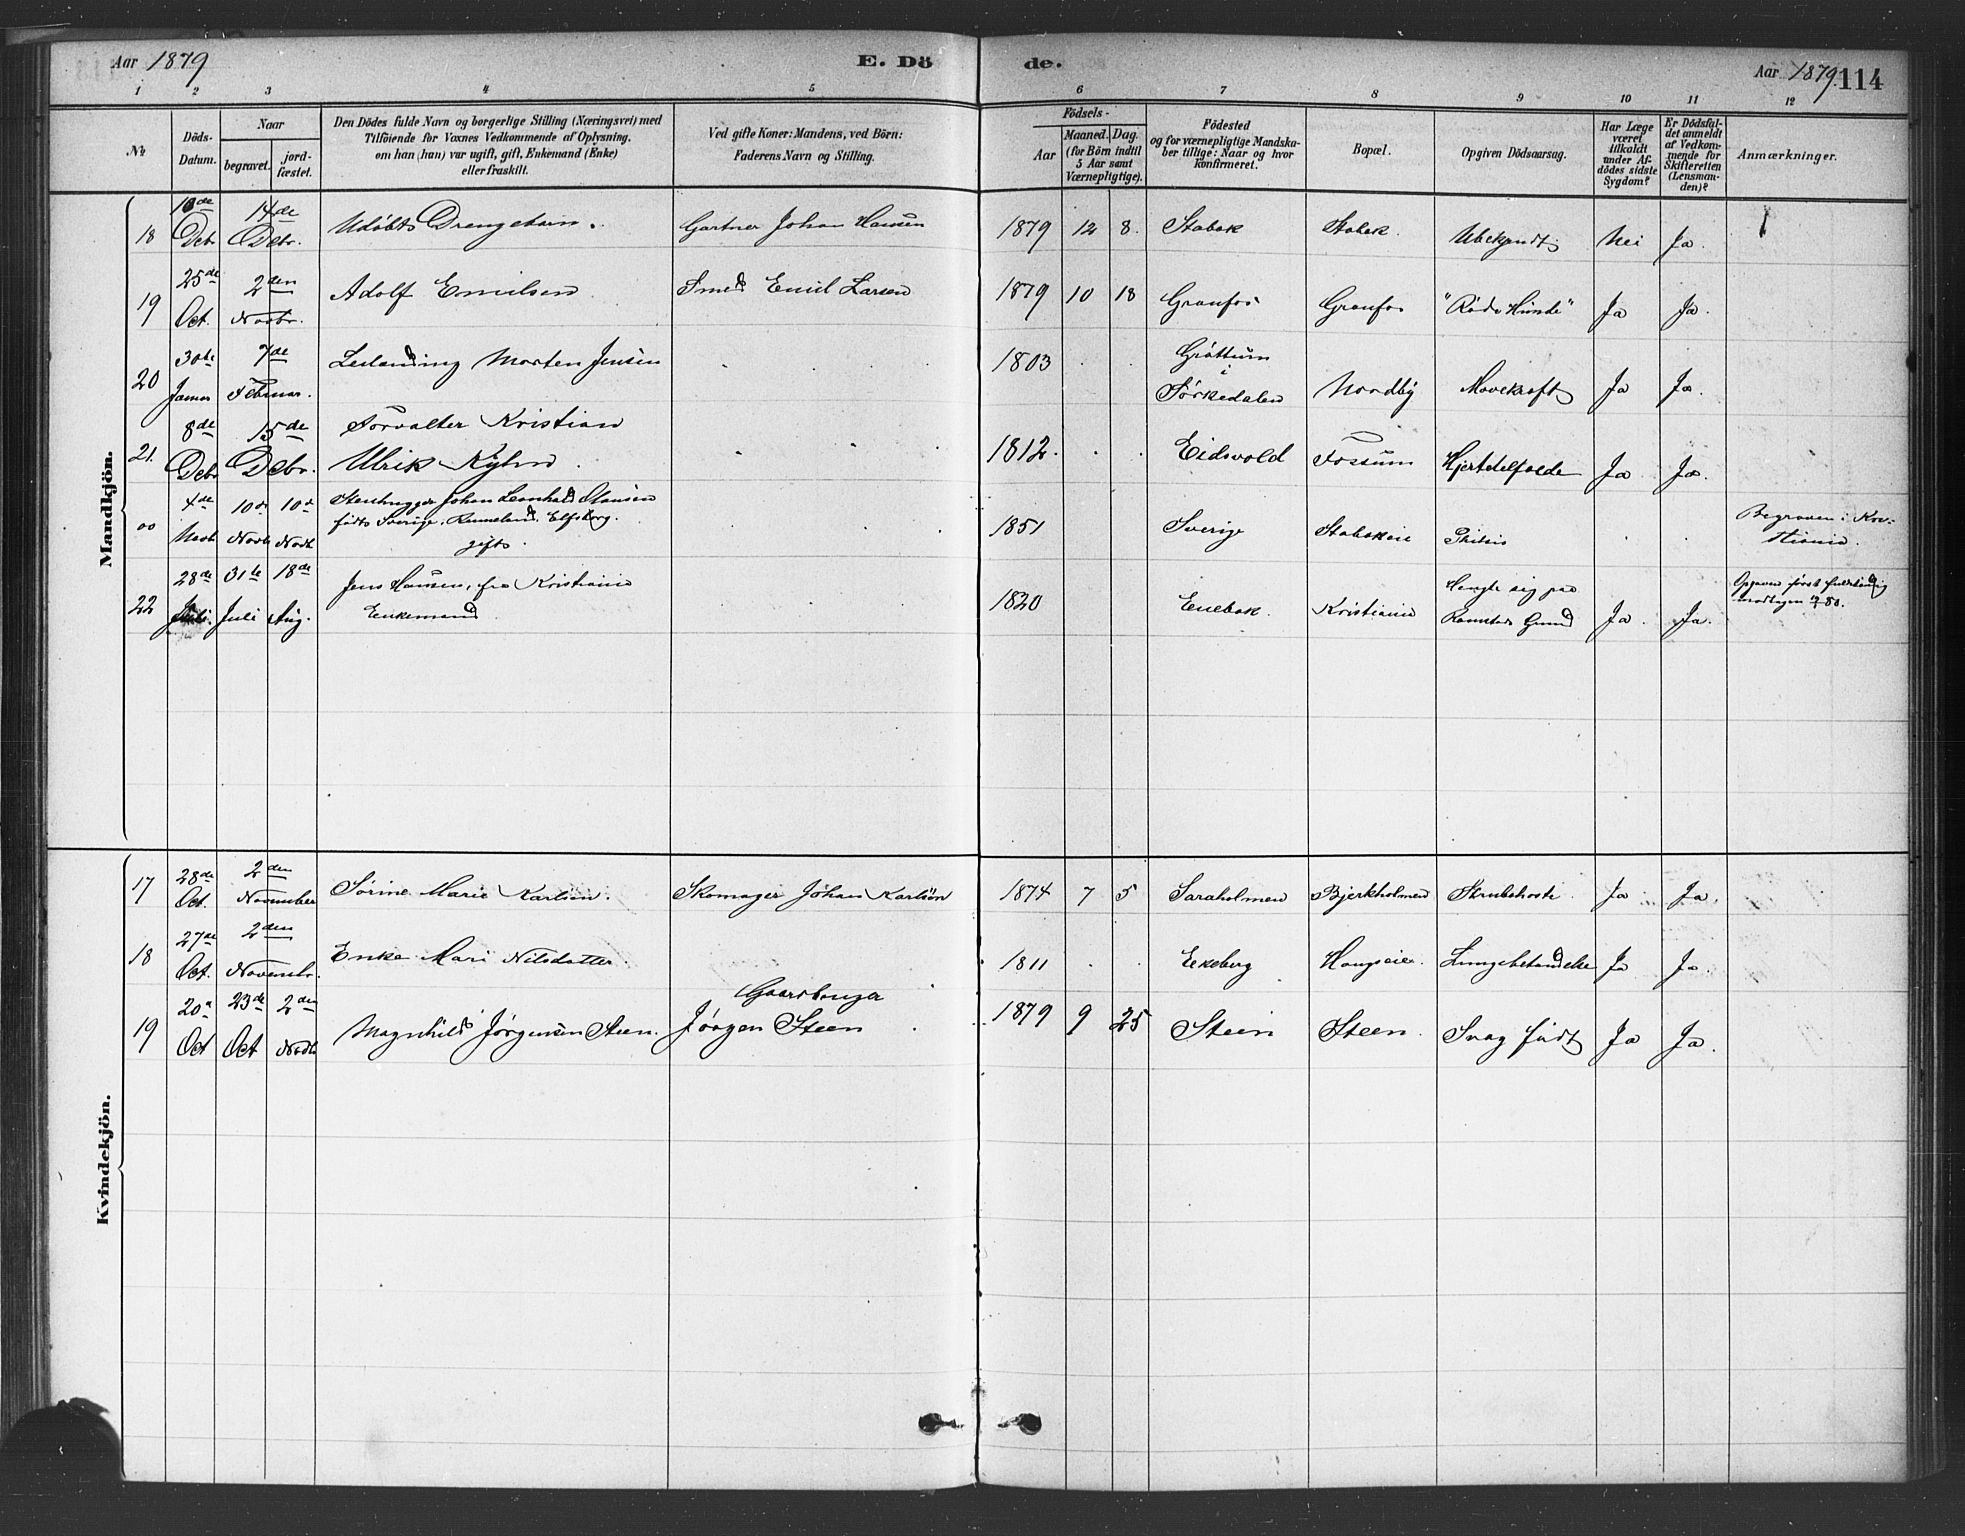 Aar 1879
E. Dö
de.
Aar 1879.
114
1 2 3 4 5 6 7 8 9 10 11 12
No
Döds-
Datum.
Naar
begravet.
jord-
fæstet.
Den Dödes fulde Navn og borgerlige Stilling (Næringsvei) med
Tilföiende for Voxnes Vedkommende af Oplysning,
om han (hun) var ugift, gift, Enkemand (Enke)
eller fraskilt.
Ved gifte Koner: Mandens, ved Börn:
Faderens Navn og Stilling.
Födsels-
Aar
Maaned. Dag.
(for Börn indtil
5 Aar samt
Værnepligtige).
Födested
og for værnepligtige Mandska-
ber tillige: Naar og hvor
konfirmeret.
Bopæl.
Opgiven Dödsaarsag.
Har Læge
været
tilkaldt
under Af-
dödes sidste
Sygdom?
Er Dödsfal-
det anmeldt
af Vedkom-
mende for
Skifteretten
(Lensman-
den)?
Anmærkninger.
Mandkjön.
18 10de Debr 14de Debr. Udøbt Drengebarn. Gartner Johan Hansen 1879 12 8. Stabæk Stabæk. Ubekjendt. Nei Ja.
19 25de Oct. 2den Novbr. Adolf Emilsen Smed Emil Larsen 1879 10 18 Granfos Granfos "Røde Hunde" Ja Ja.
20 30te Januar 7de Februar. Leilænding Morten Jensen 1803 Grøttum i Sørkedalen Nordby Mavekræft Ja Ja.
21. 8de Debr 15de Debr. Forvalter Kristian
Ulrik Kyhn. 1812. Eidsvold Fossum Hjertelfeide Ja Ja.
00 4de Novb 10de Novb 10de Novb. Stenhugger Johan Leonhard Olausen
født i Sverige, Elfsborg.
gift. 1851 Sverige Stabækeie Phthisis Begraven i Kri-
stiania.
22 28de Juli. 31te Juli 18de Aug. Jens Hansen, fra Kristiania
Enkemand 1820 Enebak. Kristiania Hængte sig paa
Ramstad Grund Ja. Ja. Opgaven først fuldstændig
modtagen 80.
Kvindekjön.
17 28de Oct. 2den November Sørine Marie Karlsen. Skomager Johan Karlsön 1874 7 5 Saraholmen Bjerkholmen Strubehoste. Ja Ja.
18 27de Oct. 2den Novembr. Enke Mari Nilsdatter. 1811 Ekeberg Haugseie. Lungebetændelse Ja Ja.
19 20de Oct 23de Oct 2den Novb. Magnhild Jørgensen Steen. Gaardbruger
Jørgen Steen 1879 9 25 Stein Steen. Svag født Ja Ja.